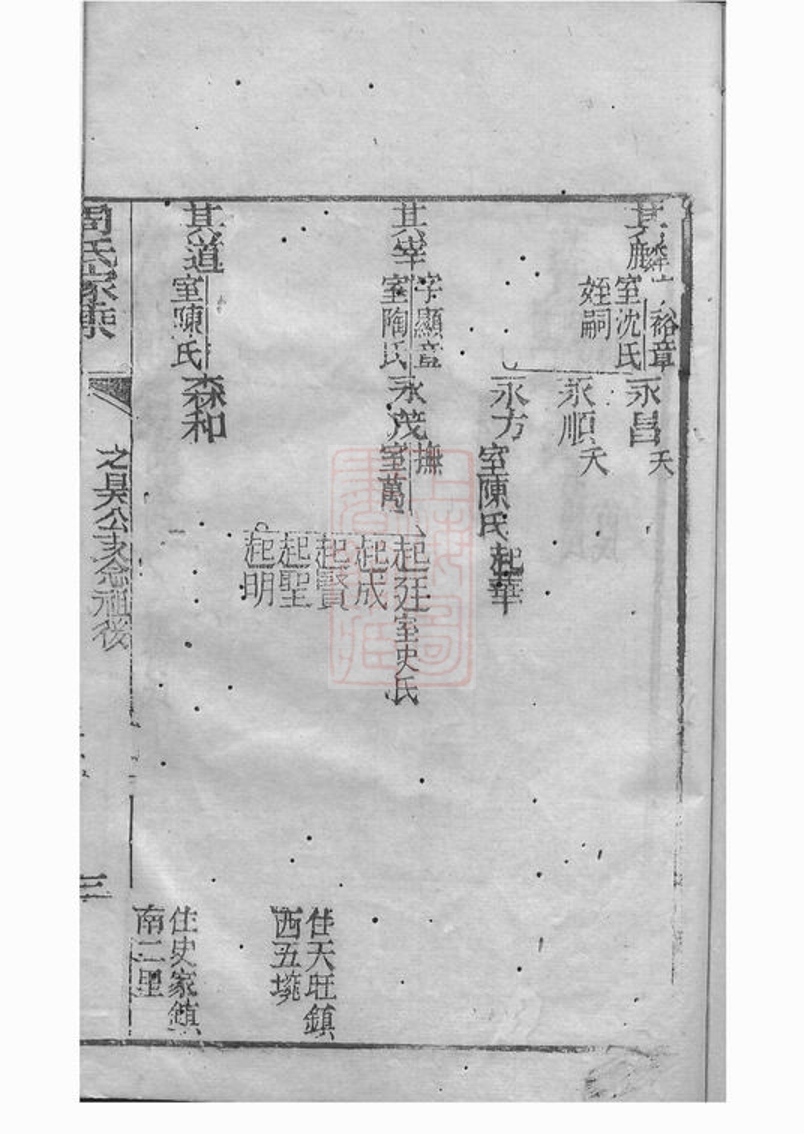 其麟
字裕章
室沈氏
姪嗣
永昌
夭
永順
夭
永方
室陳氏
起華
其宰
字顯章
室陶氏
永茂
撫
室萬
起廷
室史氏
起成
起賢
起聖
起明
住天旺鎮
西五壠
其道
室陳氏
森和
住史家鎮
南二里
周氏家乘
之昊公支念祖後
三